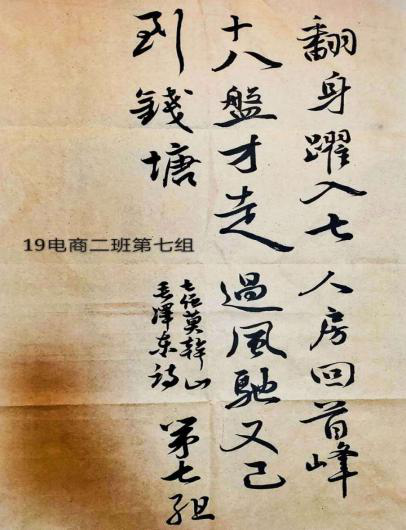 翻身躍入七人房回首峰
十八盤才走過風馳又已
到錢塘
七莫幹山
毛澤东詩
第七组
19电商二班第七组